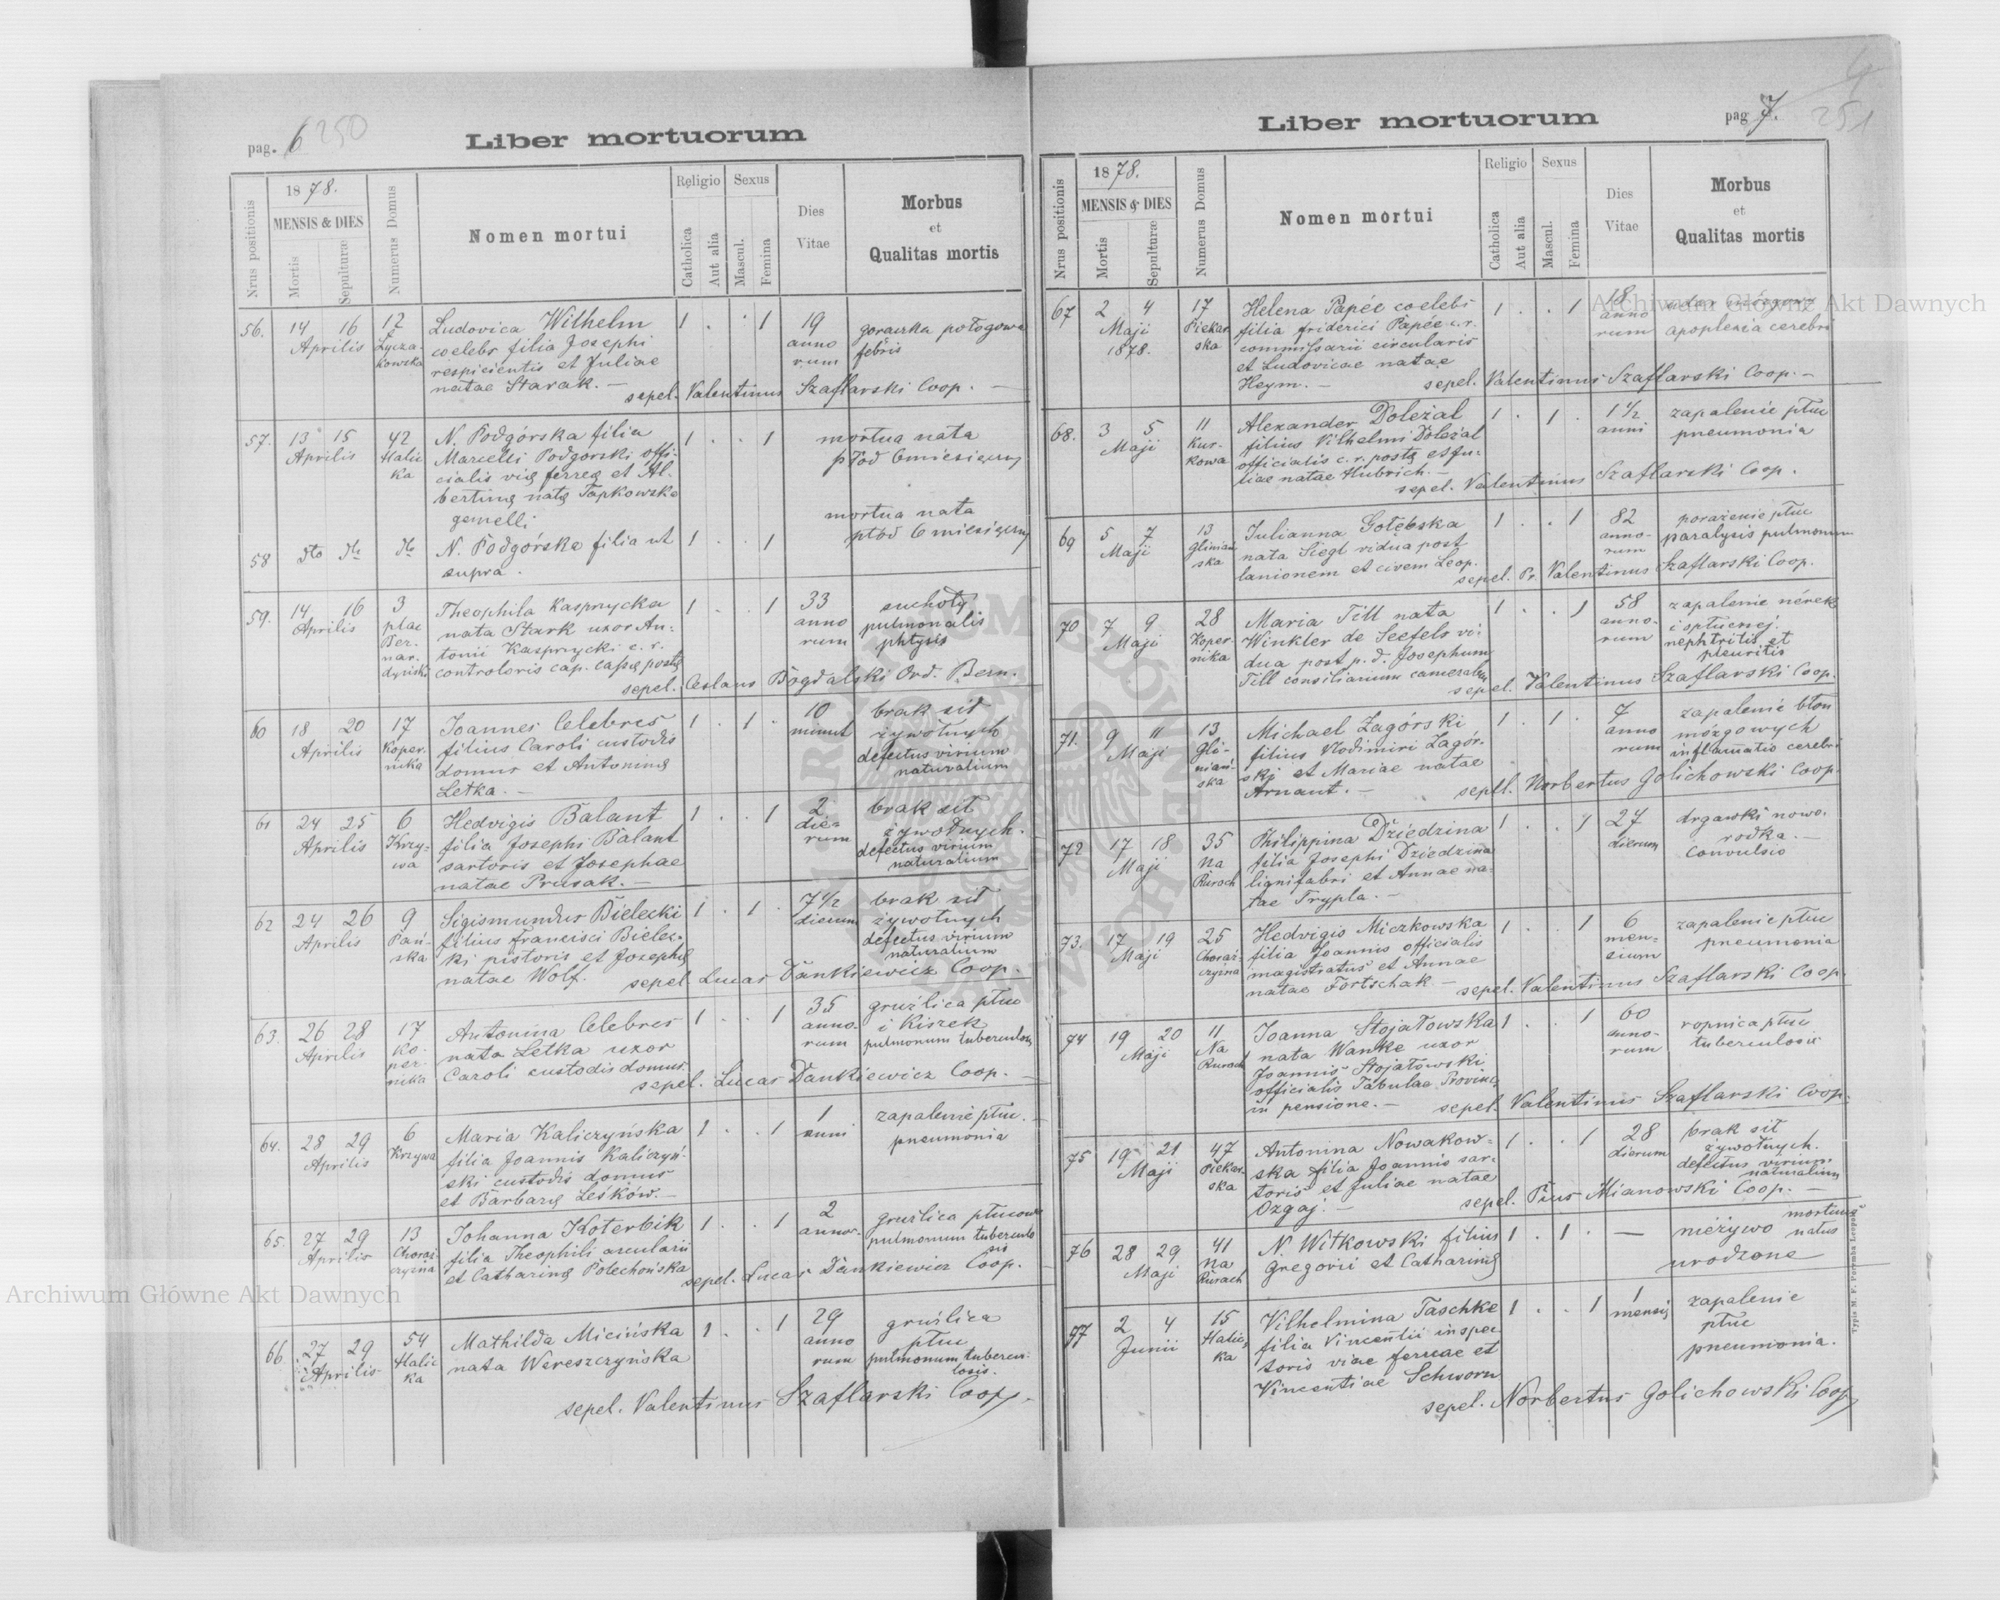 pag. 6 250
Liber mortuorum
Nrus positionis
1878.
MENSIS & DIES
Mortis
Sepulturæ
Numerus Domus
Nomen mortui
Religio
Catholica
Aut alia
Sexus
Mascul.
Femina
Dies
Vitae
Morbus
et
Qualitas mortis
56. 14 16 Aprilis 12 Łycza-
kowska
Ludovica Wilhelm 1 . . 1 19
coelebs filia Josephi anno
respicientis et Juliae rum
natae Starak. —
gorączka połogowa
febris
sepel. Valentinus Szaflarski Coop. —
57. 13 15 Aprilis 42 Halic
ka
N. Podgórska filia 1 . . 1
Marcelli Podgorski offi-
cialis vię ferreę et Al-
bertinę natę Tapkowske
gemelli
mortua nata
płod 6 miesięczny
58 dto dto dto
N. Podgórska filia ut 1 . . 1
supra.
mortua nata
płod 6 miesięczny
59. 14 16 Aprilis 3 plac
Ber-
nar-
dyński
Theophila Kasprzycka 1 . . 1 33
nata Stark uxor An- anno
tonii Kasprzycki c. r. rum
controloris cap. cassę postę
suchoty
pulmonalis
phtysis
sepel. Ceslaus Bogdalski Ord. Bern.
60 18 20 Aprilis 17 Koper.
nika
Joannes Celebres 1 . 1 . 10
filius Caroli custodis minut
domus et Antoninę
Letka. —
brak sił
żywotnych
defectus virium
naturalium
61 24 25 Aprilis 6 Krzy-
wa
Hedvigis Balant 1 . . 1 2
filia Josephi Balant die-
sartoris et Josephae rum
natae Prusak. —
brak sił
żywotnych.
defectus virium
naturalium
62 24 26 Aprilis 9 Pań-
ska
Sigismundus Bielecki 1 . 1 . 7 1/2
filius Francisci Bielec- dierum
ki pistoris et Josephę
natae Wolf.
brak sił
żywotnych
defectus virium
naturalium
sepel. Lucas Dankiewicz Coop.
63. 26 28 Aprilis 17 Ko-
per-
nika
Antonina Celebres 1 . . 1 35
nata Letka uxor anno-
Caroli custodis domus. rum
gruźlica płuc
i kiszek
pulmonum tuberculosis
sepel. Lucas Dankiewicz Coop. —
64. 28 29 Aprilis 6 Krzywa
Maria Kaliczyńska 1 . . 1 1
filia Joannis Kaliczyń- anni
ski custodis domus
et Barbarę Leśków. —
zapalenie płuc.
pneumonia
65. 27 29 Aprilis 13 Chorąż
czyzna
Johanna Koterbik 1 . . 1 2
filia Theophili arcularii anno-
et Catharinę Polechońska
gruźlica płucowa
pulmonum tuberculo
sis
sepel. Lucas Dankiewicz Coop.
66. 27 29 Aprilis 54 Halic
ka
Mathilda Micińska 1 . . 1 29
nata Wereszczyńska anno
rum
gruźlica
płuc
pulmonum tubercu-
losis.
sepel. Valentinus Szaflarski Coop.
pag 7. 251
Liber mortuorum
Nrus positionis
1878.
MENSIS & DIES
Mortis
Sepulturæ
Numerus Domus
Nomen mortui
Religio
Catholica
Aut alia
Sexus
Mascul.
Femina
Dies
Vitae
Morbus
et
Qualitas mortis
67 2 4 Maji 1878. 17 Piekar
ska
Helena Papée coelebs 1 . . 1 18
filia friderici Papée c. r. anno
commissarii circularis rum
et Ludovicae natae
Heym. —
udar mózgowy
apoplexia cerebri
sepel. Valentinus Szaflarski Coop. —
68. 3 5 Maji 11 Kur-
kowa
Alexander Doleżal 1 . 1 . 1 1/2
filius Vilhelmi Doleżal anni
officialis c. r. postę et Ju-
liae natae Hubrich. —
zapalenie płuc
pneumonia
sepel. Valentinus Szaflarski Coop.
69 5 7 Maji 13 Gliniań
ska
Julianna Gołębska 1 . . 1 82
nata Siegl vidua post anno-
lanionem et civem Leop. rum
porażenie płuc
paralysis pulmonum
sepel. Pr. Valentinus Szaflarski Coop.
70 7 9 Maji 28 Koper-
nika
Maria Till nata 1 . . 1 58
Winkler de Seefels vi- anno-
dua post p. d. Josephum rum
Till consiliarium cameralem
zapalenie nérek
i opłucnej.
nephtritis et
pleuritis
sepel. Valentinus Szaflarski Coop.
71. 9 11 Maji 13 Gli-
niań-
ska
Michael Zagórski 1 . 1 . 7
filius Vlodimiri Zagór- anno
ski et Mariae natae rum
Arnaut. —
zapalenie błon
mózgowych
inflamatio cerebri
sepel. Norbertus Golichowski Coop.
72 17 18 Maji 35 Na
Rurach
Philippina Dziedzina 1 . . 1 27
filia Josephi Dziedzina dierum
lignifabri et Annae na-
tae Trypla. —
drgawki nowo-
rodka. —
Convulsio
73. 17 19 Maji 25 Chorąż-
czyzna
Hedvigis Miczkowska 1 . . 1 6
filia Joannis officialis men-
magistratus et Annae sium
natae Fortschak —
zapalenie płuc
pneumonia
sepel. Valentinus Szaflarski Coop.
74 19 20 Maji 11 Na
Rurach
Joanna Stojałowska 1 . . 1 60
nata Wanke uxor anno-
Joannis Stojałowski rum
officialis Tabulae Provinc
in pensione. —
ropnica płuc
tuberculosis
sepel. Valentinus Szaflarski Coop.
75 19 21 Maji 47 Piekar
ska
Antonina Nowakow- 1 . . 1 28
ska filia Joannis sar- dierum
toris et Juliae natae
Ozgaj. —
brak sił
żywotnych.
defectus virium
naturalium
sepel. Pius Mianowski Coop. —
76 28 29 Maji 41 Na
Rurach
N. Witkowski filius 1 . 1 . —
Gregorii et Catharinę
nieżywo mortuus
natus
urodzone
77 2 4 Junii 15 Halic
ka
Vilhelmina Taschke 1 . . 1 1
filia Vincentii inspec mensis
toris viae ferreae et
Vincentiae Schworn
zapalenie
płuc
pneumonia.
sepel. Norbertus Golichowski Coop
Typis M. F. Poremba Leopoli
Archiwum Główne Akt Dawnych
Archiwum Główne Akt Dawnych
ARCHIWUM GŁÓWNE AKT DAWNYCH